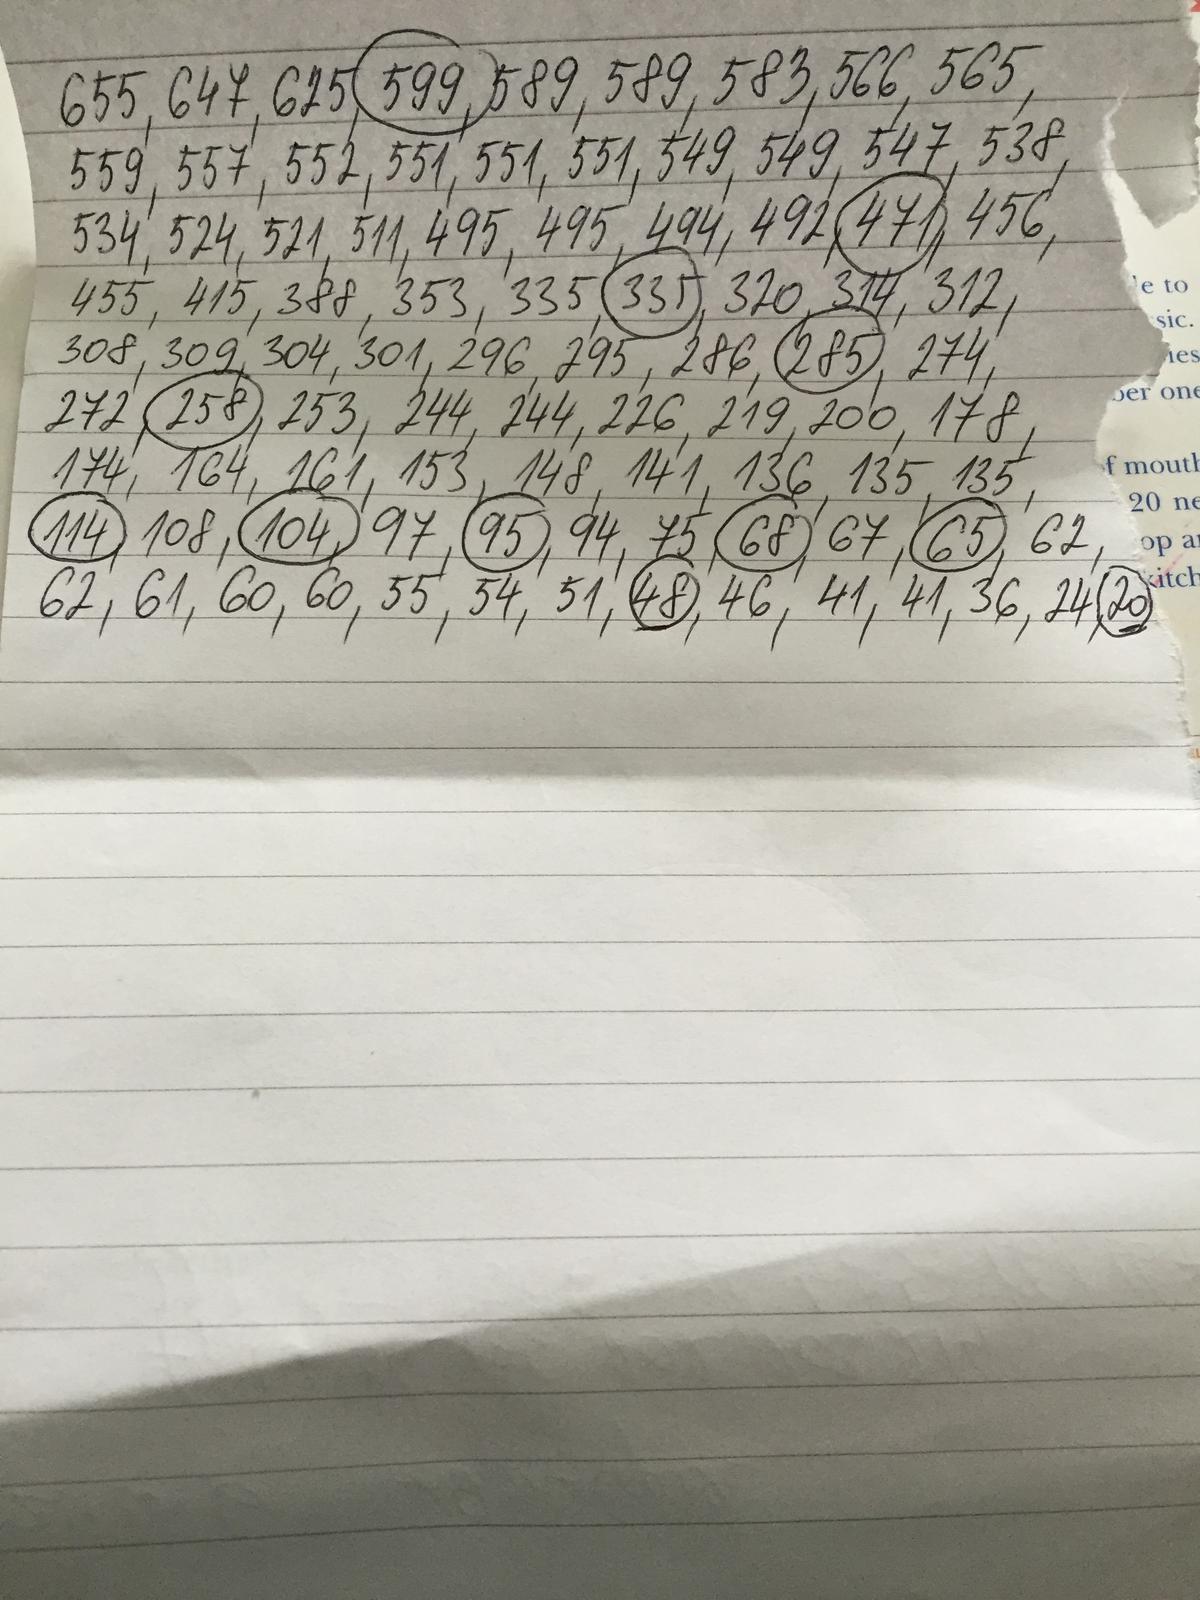 655, 647, 625, 599, 589, 589, 583, 566, 565,
559, 557, 552, 551, 551, 551, 549, 549, 547, 538,
534, 524, 521, 511, 495, 495, 494, 492, 471, 456,
455, 415, 388, 353, 335, 335, 320, 314, 312,
308, 309, 304, 301, 296, 295, 286, 285, 274,
272, 258, 253, 244, 244, 226, 219, 200, 178,
174, 164, 161, 153, 148, 141, 136, 135, 135,
114, 108, 104, 97, 95, 94, 75, 68, 67, 65, 62,
62, 61, 60, 60, 55, 54, 51, 48, 46, 41, 41, 36, 24, 20
to
sic.
ies
ber one
f mouth
20 ne
op a
kitch